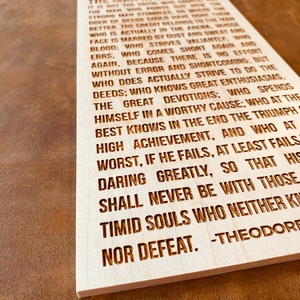 STRONG MAN STUMBLES
DOER OF DEEDS COULD HAVE DONE THEM
BETTER. THE CREDIT BELONGS TO THE MAN
WHO IS ACTUALLY IN THE ARENA, WHOSE
FACE IS MARRED BY DUST AND SWEAT AND
BLOOD; WHO STRIVES VALIANTLY; WHO
ERRS, WHO COMES SHORT AGAIN AND
AGAIN, BECAUSE THERE IS NO EFFORT
WITHOUT ERROR AND SHORTCOMING; BUT
WHO DOES ACTUALLY STRIVE TO DO THE
DEEDS; WHO KNOWS GREAT ENTHUSIASMS,
THE GREAT DEVOTIONS; WHO SPENDS
HIMSELF IN A WORTHY CAUSE; WHO AT THE
BEST KNOWS IN THE END THE TRIUMPH
HIGH ACHIEVEMENT, AND WHO AT
WORST, IF HE FAILS, AT LEAST FAILS
DARING GREATLY, SO THAT HI
SHALL NEVER BE WITH THOSE
TIMID SOULS WHO NEITHER KN
NOR DEFEAT. -THEODORE